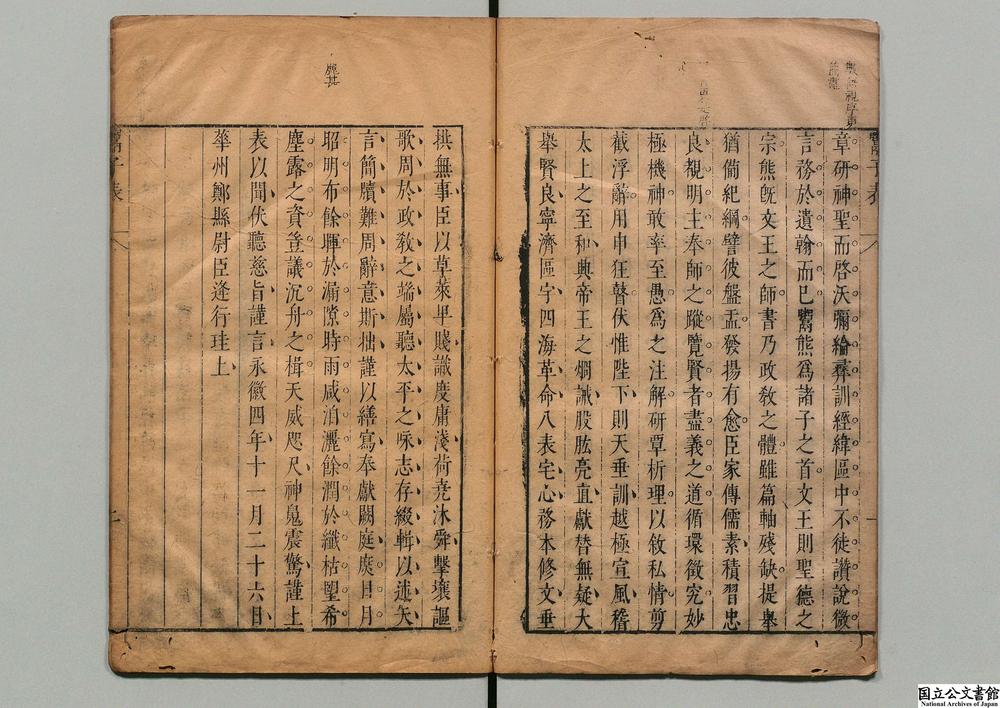 章研神聖而啓沃彌綸彝訓經緯區中不徒讚說微
言務於遺翰而已鬻熊爲諸子之首文王則聖德之
宗熊旣文王之師書乃政敎之體雖篇軸殘缺提舉
猶備紀綱譬彼盤盂發揚有愈臣家傳儒素積習忠
良覩明主奉師之蹤覽賢者盡義之道循環徵究妙
極機神敢率至愚爲之注解研覃析理以敘私情剪
截浮辭用申狂瞽伏惟陛下則天垂訓越極宣風稽
太上之至和典帝王之烱誡股肱亮直獻替無疑大
舉賢良寧濟區宇四海革命八表宅心務本修文垂
拱無事臣以草萊卑賤識度庸淺荷堯沐舜擊壤謳
歌周於政敎之端屬聽太平之咏志存綴輯以述矢
言簡牘難周辭意斯拙謹以繕寫奉獻闕庭庶日月
昭明布餘暉於漏隙時雨咸洎灑餘潤於纖枯望希
塵露之資豈議沉舟之楫天威咫尺神䰟震驚謹上
表以聞伏聽慈旨謹言永徽四年十一月二十六日
華州鄭縣尉臣逢行珪上
鬻子 表
國立公文書館
National Archives of Japan